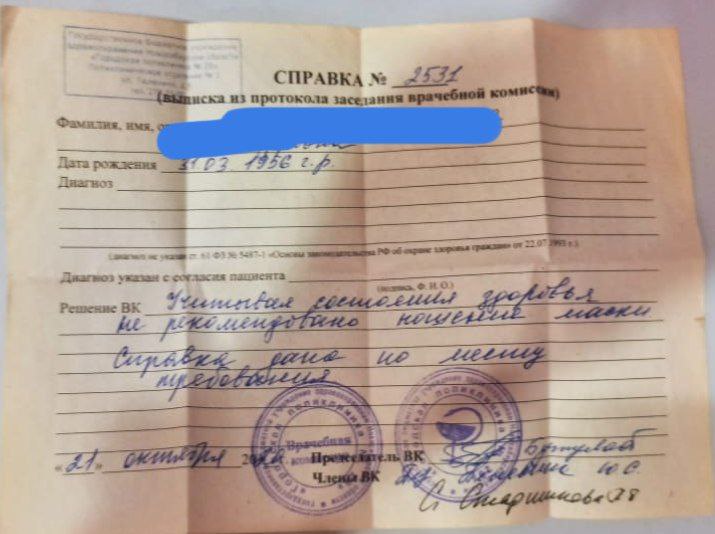 Государственное бюджетное учреждение
здравоохранения Новосибирской области
«Городская поликлиника № 20»
СПРАВКА № 2531
(выписка из протокола заседания врачебной комиссии)
Фамилия, имя,
Дата рождения 31.03.1956 г.р.
Диагноз
(диагноз не указан ст. 61 ФЗ № 5487-1 «Основы законодательства РФ об охране здоровья граждан» от 22.07.1993 г.)
Диагноз указан с согласия пациента
(подпись, Ф. И. О.)
Решение ВК Учитывая состояния здоровья
не рекомендовано ношение маски
Справка дана по месту
требования
Врачебная
«21» октября
Председатель ВК
Члены ВК